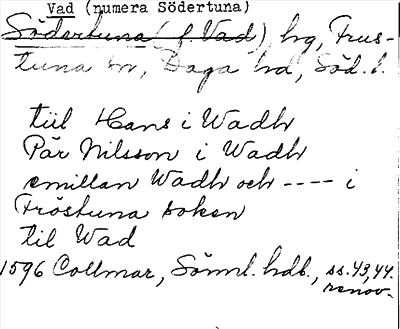 Vad (numera Södertuna)
Södertuna (f. Vad) hg, Frus-
tuna sn, Daga hd, Söd. l.
till Hans i Wadh
Pär Nilsson i Wadh
emillan Wadh och ---- i
Fröstuna soken
til Wad
1596 Collmar, Sörml. hdl., ss. 43, 44.
renov.